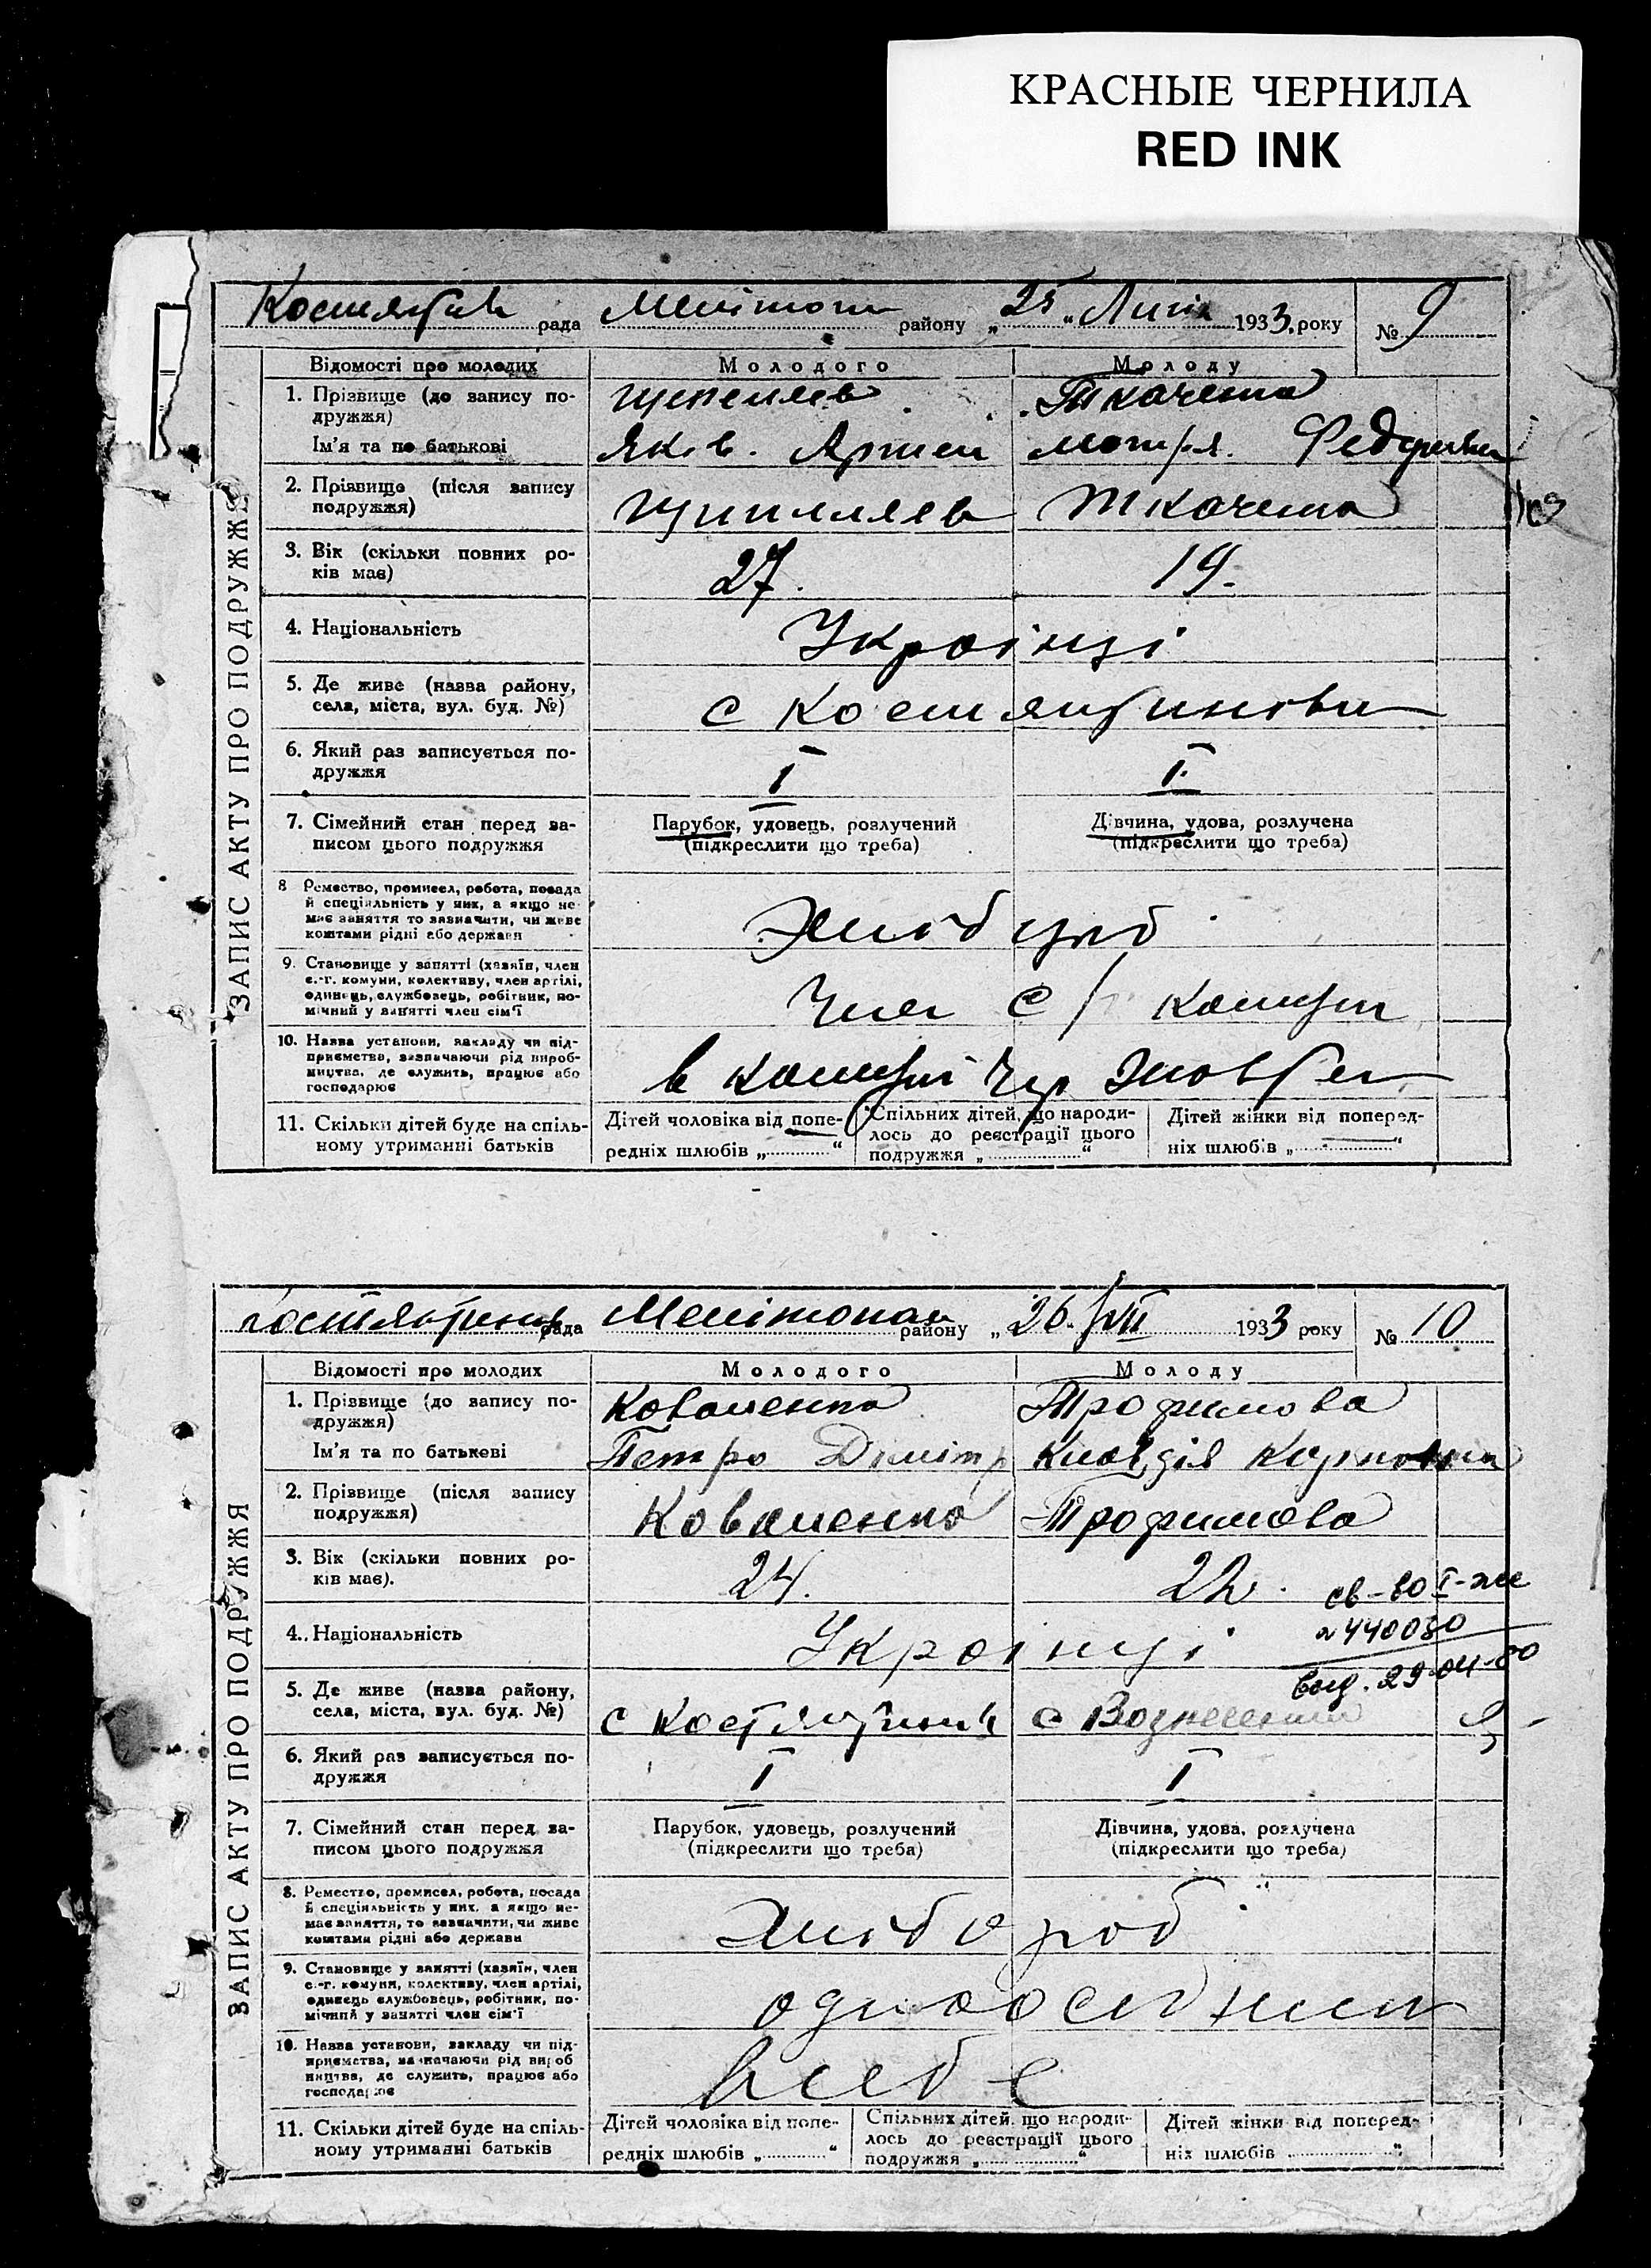 КРАСНЫЕ ЧЕРНИЛА
RED INK
рада Меліто району „25„ Липня 1933 року № 9
ЗАПИС АКТУ ПРО ПОДРУЖЖЯ
Відомості про молодих Молодого Молоду
1. Прізвище (до запису по-
дружжя)
Ім'я та по батькові
Яків. Артем Мотря.
2. Прізвище (після запису
подружжя)
3. Вік (скільки повних ро-
ків має)
27. 19.
4. Національність
Українці
5. Де живе (назва району,
села, міста, вул. буд. №)
с
6. Який раз записується по-
дружжя
I I
7. Сімейний стан перед за-
писом цього подружжя
Парубок, удовець, розлучений
(підкреслити що треба)
Дівчина, удова, розлучена
(підкреслити що треба)
8 Ремество, промисел, робота, посада
й спеціяльність у них, а якщо не
має заняття то зазначити, чи живе
коштами рідні або держави
Хлібороб
9. Становище у занятті (хазяїн, член
с.-г. комуни, колективу, член артілі,
одинець, службовець, робітник, по-
мічний у занятті член сім'ї
Член с/г комуни
10. Назва установи, закладу чи під-
приємства, зазначаючи рід вироб-
ництва, де служить, працює або
господарює
в комуні
11. Скільки дітей буде на спіль-
ному утриманні батьків
Дітей чоловіка від попе-
редніх шлюбів „ “
Спільних дітей, що народи-
лось до реєстрації цього
подружжя „ “
Дітей жінки від поперед-
ніх шлюбів „ “
рада Мелітопол району „26. VII 1933 року № 10
ЗАПИС АКТУ ПРО ПОДРУЖЖЯ
Відомості про молодих Молодого Молоду
1. Прізвище (до запису по-
дружжя)
Коваленко Трофимова
Ім'я та по батькові
Петро Дмитр Клавдія
2. Прізвище (після запису
подружжя)
Коваленко Трофимова
3. Вік (скільки повних ро-
ків має).
24. 22.
св-во I-жс
№ 440080
выд. 29-04-80
4. Національність
Українці
5. Де живе (назва району,
села, міста, вул. буд. №)
с с Вознесенка
6. Який раз записується по-
дружжя
I I
7. Сімейний стан перед за-
писом цього подружжя
Парубок, удовець, розлучений
(підкреслити що треба)
Дівчина, удова, розлучена
(підкреслити що треба)
8. Ремество, промисел, робота, посада
й спеціяльність у них, а якщо не-
має заняття, то зазначити, чи живе
коштами рідні або держави
Хлібороб
9. Становище у занятті (хазяїн, член
с.-г. комуни, колективу, член артілі,
одинець службовець, робітник, по-
мічний у занятті член сім'ї
одноосібники
10. Назва установи, закладу чи під-
приємства, зазначаючи рід вироб
ництва, де служить, працює або
господарює
в себе
11. Скільки дітей буде на спіль-
ному утриманні батьків
Дітей чоловіка від попе-
редніх шлюбів „ “
Спільних дітей, що народи-
лось до реєстрації цього
подружжя „ “
Дітей жінки від поперед-
ніх шлюбів “